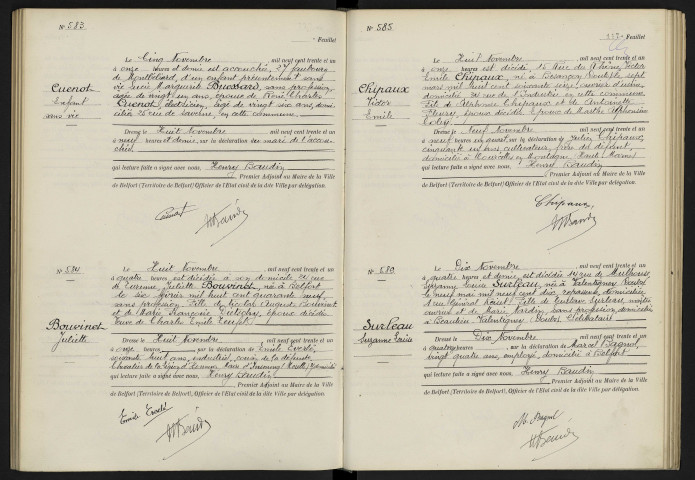 N° 583
Feuillet
Cuenot
Enfant
sans vie
Le Cinq Novembre mil neuf cent trente et un
à onze heures et demie est accouchée, 27 faubourg
de Montbéliard, d'un enfant présentement sans
vie Lucie Marguerite Bussard, sans profession,
âgée de vingt un ans, épouse de René Charles
Cuenot, âgé de vingt six ans, domi-
ciliés rue de Saverne, en cette commune.
Dressé le Huit Novembre mil neuf cent trente et un
à neuf heures et demie, sur la déclaration du mari de l'accou-
chée
qui lecture faite a signé avec nous, Henry Baudin
Premier Adjoint au Maire de la Ville
de Belfort (Territoire de Belfort) Officier de l'Etat civil de la dite Ville par délégation.
Cuenot
N° 584
Bouvinet
Juliette
Le Huit Novembre mil neuf cent trente et un
à quatre heures est décédée à son domicile, rue
de Turenne, Juliette Bouvinet, née à Belfort
le six février mil huit cent quarante neuf,
sans profession. Fille de Nicolas Auguste Bouvinet
et de Marie Françoise, épouse décédés
Veuve de Charles Emile
Dressé le Huit Novembre mil neuf cent trente et un
à heures, sur la déclaration de Emile
soixante huit ans, industriel, cousin de la défunte,
Chevalier de la Légion d'honneur
qui lecture faite a signé avec nous, Henry Baudin
Premier Adjoint au Maire de la Ville
de Belfort (Territoire de Belfort), Officier de l'Etat civil de la dite Ville par délégation.
N° 585
Feuillet
Chipaux
Victor
Emile
Le Huit Novembre mil neuf cent trente et un
à onze heures est décédé, 15 rue du Rhône, Victor
Emile Chipaux, né à Besançon Doubs le sept
mars mil huit cent soixante seize, ouvrier d'usine,
domicilié rue de l'Industrie en cette commune.
Fils de Alphonse Chipaux et de Antoinette
Fleurey, époux décédés. Epoux de Marthe Alphonsine
Dressé le Neuf Novembre mil neuf cent trente et un
à neuf heures un quart, sur la déclaration de Julien Chipaux,
cinquante un ans, cultivateur, frère du défunt,
domicilié à
qui lecture faite a signé avec nous, Henry Baudin
Premier Adjoint au Maire de la Ville
de Belfort (Territoire de Belfort) Officier de l'Etat civil de la dite Ville par délégation.
Chipaux
N° 586
Surleau
Suzanne Louise
Le Dix Novembre mil neuf cent trente et un
à quatre heures et demie, est décédée 14 rue de Mulhouse
Suzanne Louise Surleau, née à Valentigney Doubs
le neuf mai mil neuf cent dix, repasseuse, domiciliée
rue Général. Fille de Gustave Surleau,
et de Marie Jardin, sans profession, domiciliés
à Beaulieu Valentigney Doubs. Célibataire
Dressé le Dix Novembre mil neuf cent trente et un
à heures, sur la déclaration de Marcel
vingt quatre ans, employé, domicilié à Belfort
qui lecture faite a signé avec nous, Henry Baudin
Premier Adjoint au Maire de la Ville
de Belfort (Territoire de Belfort) Officier de l'Etat civil de la dite Ville par délégation.